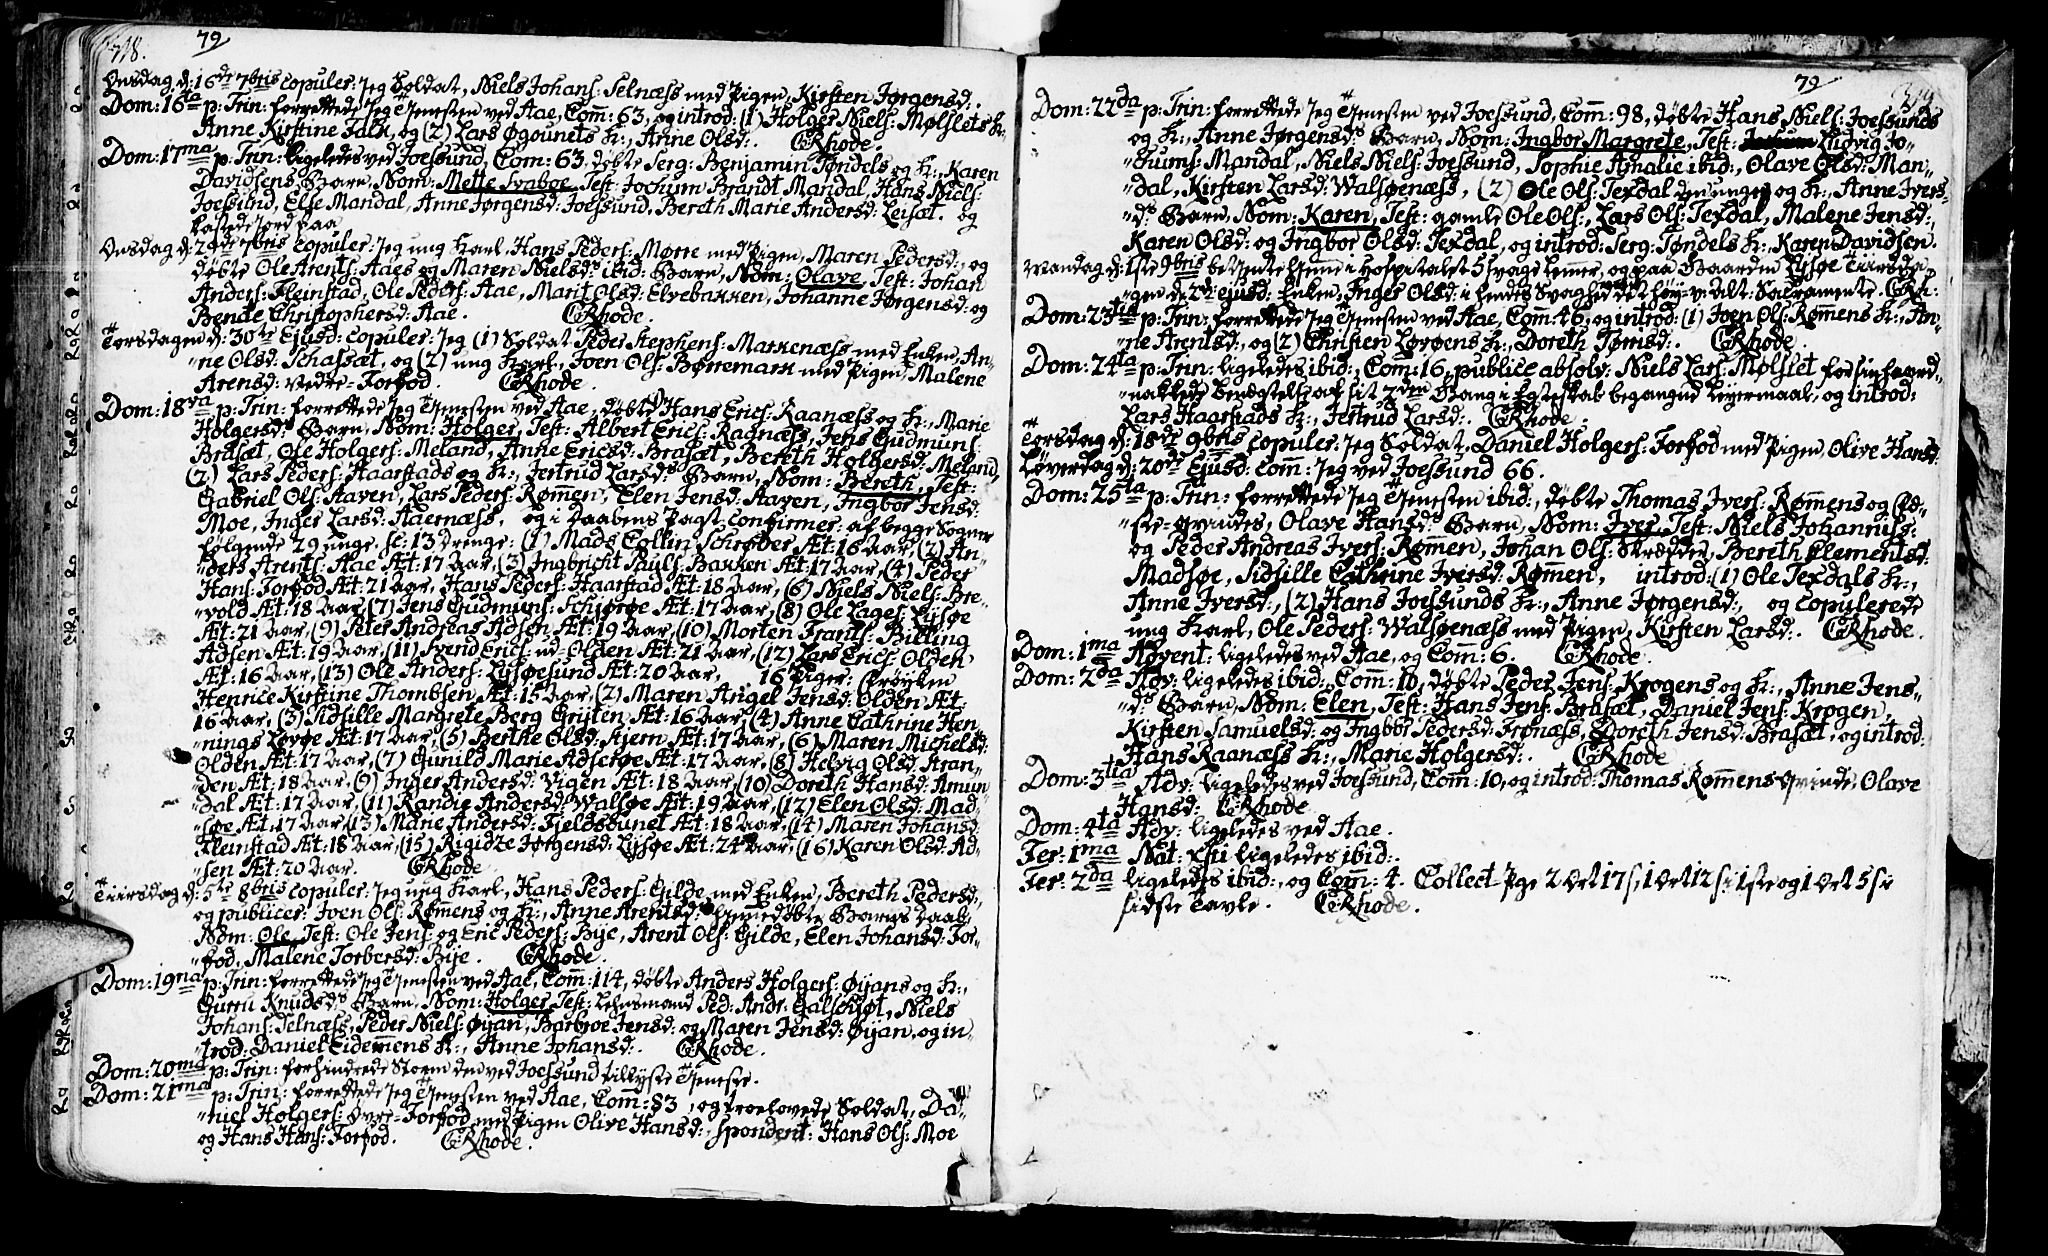 318.
79
Onsdag d: 16de 7bris copuler: Jeg Soldat, Niels Johans: Selnæss med Pigen, Kirsten Jørgensd:.
Dom: 16ta p: Trin: forrettede Jeg Tjenesten ved Aae, Com̄: 63, og introd: (1) Holger Niels: Mølslets K:
Anne Kirstine Falk, og (2) Lars Øgounets K:, Anne Olsd:. CRhode.
Dom: 17ma p: Trin: ligeledes ved Joessund, Com: 63, døbte Serg: Benjamin Tøndels og K:, Karen
Davidsens Barn, Nom: Mette Svaboe, Test: Jochum Brandt Mandal, Hans Niels:
Joessund, Else Mandal, Anne Jørgensd: Joessund, Bereth Marie Andersd: Leisæt. og
kastede Jord paa
Onsdag d: 29de 7bris copuler: Jeg ung Karl, Hans Peders: Mørre med Pigen, Maren Pedersd:, og
døbte Ole Arents: Aaes og Maren Nielsds ibid: Barn, Nom: Olave, Test: Johan
Anders: Fleinstad, Ole Peders: Aae, Marit Olsd: Elvebakken, Johanne Jørgensd: og
Bende Christophersd: Aae. CRhode.
Torsdagen d: 30te Ejusd: copuler: Jeg (1) Soldat Peder Stephens: Markenæss med Enken, An-
"ne Olsd: Schassæt, og (2) ung Karl, Joen Ols: Børremark med Pigen, Malene
Arensd: Nedre-Forfod. CRhode.
Dom: 18va p: Trin: forrettede Jeg Tjenesten ved Aae, døbte (1) Hans Erics: Raanæss og K:, Marie
Holgersds Barn, Nom: Holger, Test: Albert Erics: Raanæss, Jens Gudmuns:
Brasæt, Ole Holgers: Meland, Anne Ericsd: Brasæt, Bereth Holgersd: Meland,
(2) Lars Peders: Haarstads og K:, Jertrud Larsds Barn, Nom: Bereth, Test:
Gabriel Ols: Aaven, Lars Peders: Rømen, Elen Jensd: Aaven, Ingbor Jensd:
Moe, Inger Larsd: Aaernæss, og i Daabens Pagt confirmer: af begge Sogner
følgende 29 unge. sc: 13 Drenge: (1) Mads Collin Schrøder Æt: 16 Aar, (2) An-
"ders Arents: Aae Æt: 17 Aar, (3) Ingbricht Pauls: Bakken Æt: 17 Aar, (4) Peder
Hans: Forfod Æt: 21 Aar, Hans Peders: Haarstad Æt: 18 Aar, (6) Niels Niels: Bre-
"vold Æt: 18 Aar, (7) Jens Gudmuns: Schjørøe Æt: 17 Aar, (8) Ole Lages: Lysøe
Æt: 21 Aar, (9) Peter Andreas Adsen Æt: 19 Aar, (10) Morten Frants: Billing
Adsen Æt: 19 Aar, (11) Svend Erics: ud-Olden Æt: 21 Aar, (12) Lars Erics: Olden
Æt: 16 Aar, (13) Ole Anders: Lysøesund Æt: 20 Aar, 16 Piger: Frøyken
Henrice Kirstine Thombsen Æt: 15 Aar, (2) Maren Angel Jensd: Olden Æt:
16 Aar, (3) Sidsille Margrete Berg Grijten Æt: 16 Aar, (4) Anne Cathrine Hen-
"nings Løvøe Æt: 17 Aar, (5) Berthe Olsd: Stjern Æt: 17 Aar, (6) Maren Michelsd:
Olden Æt: 17 Aar, (7) Gunild Marie Adserøe Æt: 17 Aar, (8) Helvig Olsd: Aran-
"den Æt: 18 Aar, (9) Inger Andersd: Vigen Æt: 18 Aar, (10) Doreth Hansd: Amun-
"dal Æt: 17 Aar, (11) Randie Andersd: Walsøe Æt: 19 Aar, (12) Elen Olsd: Mad-
"søe Æt: 17 Aar, (13) Marie Andersd: Fjeldssunet Æt: 18 Aar, (14) Maren Johansd:
Fleinstad Æt: 18 Aar, (15) Rigidze Jørgensd: Lysøe Æt: 24 Aar, (16) Karen Olsd: Ad-
"sen Æt: 20 Aar. CRhode
Tiirsdag d: 5te 8bris copuler: Jeg ung Karl, Hans Peders: Gilde med Enken, Bereth Pedersd:,
og publicer: Joen Ols: Rømens og K:, Anne Arentsd: hjemmedøbte Barns Daab,
Nom: Ole, Test: Ole Jens: og Eric Peders: Bije, Arent Ols: Gilde, Elen Johansd: For-
"fod, Malene Torbersd: Bije. CRhode.
Dom: 19na p: Trin: forrettede Jeg Tjenesten ved Aae, Com̄: 114, døbte Anders Holgers: Øijans og K:,
Guru Knudsds Barn, Nom: Holger, Test: Lehnsmand Ped: Andr: Galschjøt, Niels
Johans: Selnæss, Peder Niels: Øijan, Barbroe Jensd: og Maren Jensd: Øijan, og in-
"trod: Daniel Eidemens K:, Anne Johansd:. CRhode.
Dom: 20ma p: Trin: forhindrede Storm den ved Joessund tillyste Tjeneste.
Dom: 21ma p: Trin: forrettede Jeg Tjenesten ved Aae, Com: 83, og troelovede Soldat, Da-
"niel Holgers: Øvre-Forfod med Pigen Olive Hansd:, spondent: Hans Ols: Moe
og Hans Hans: Forfod. CRhode.
79
319
Dom: 22da p: Trin: forrettede Jeg Tjenesten ved Joessund, Com̄: 98, døbte Hans Niels: Joessunds
og K:, Anne Jørgensds Barn, Nom: Ingbor Margrete, Test: Ludvig Jo-
"chums: Mandal, Niels Niels: Joessund, Sophie Amalie ibid:, Olave Olsd: Man-
"dal, Kirsten Larsd: Walsøenæss, (2) Ole Ols: Texdal den unges og K:, Anne Ivers-
"ds Barn, Nom: Karen, Test: gamle Ole Ols:, Lars Ols: Texdal, Malene Jensd:,
Karen Olsd: og Ingbor Olsd: Texdal, og introd: Serg: Tøndels K:, Karen Davidsen.
Mandag d: 1ste 9bris betjente hjemme i Hospitalet 5 svage Lemer, og paa Gaarden Lysøe Tiirsda-
"gen d: 2de ejusd: Enken, Inger Olsd: i hendes Svaghed det høyv: Alt: Sacramente. CRh:
Dom: 23tia p: Trin: forrettede Jeg Tjenesten ved Aae, Com: 46, og introd: (1) Joen Ols: Rømens K:, An-
"ne Arentsd:, og (2) Christen Lørøens K:, Doreth Tømsd:. CRhode.
Dom: 24ta p: Trin: ligeledes ibid:, Com: 16, publice absolv: Niels Lars: Mølslet for sin haard-
"nakkede Benægtelse af sit 2den Gang i Egteskab begangne Leyermaal, og introd:
Lars Haarstads K:, Jertrud Larsd:. CRhode.
Torsdag d: 18de 9bris copuler: Jeg Soldat Daniel Holgers: Forfod med Pigen, Olive Hansd:
Løverdag d: 20de Ejusd: Com̄: Jeg ved Joessund 66.
Dom: 25ta p: Trin: forrettede Jeg Tjenesten ibid:, døbte Thomas Ivers: Rømens og
"ste-qvindes, Olave Hansds Barn, Nom: Iver, Test: Niels Johannis:
og Peder Andreas Ivers: Rømen, Johan Ols: Skrædder, Bereth Clementsd:
Madsøe, Sidsille Cathrine Iversd: Rømen, introd: (1) Ole Texdals K:,
Anne Iversd:, (2) Hans Joessunds K:, Anne Jørgensd:, og copulerede
ung Karl, Ole Peders: Walsøenæss med Pigen, Kirsten Larsd:. CRhode.
Dom: 1ma Advent: ligeledes ved Aae, og Com̄: 6. CRhode.
Dom: 2da Adv: ligeledes ibid:, Com̄: 10, døbte Peder Jens: Krogens og K:, Anne Jens-
"ds Barn, Nom: Elen, Test: Hans Jens: Brasæt, Daniel Jens: Krogen,
Kirsten Samuelsd: og Ingbor Pedersd: Frønæss, Doreth Jensd: Brasæt, og introd:
Hans Raanæss K:, Marie Holgersd:. CRhode
Dom: 3tia Adv: ligeledes ved Joessund, Com̄: 10, og introd: Thomas Rømens Qvinde, Olave
Hansd: CRhode
Dom: 4ta Adv: ligeledes ved Aae.
Fer: 1ma Nat: Xsti ligeledes ibid:.
Fer: 2da ligeledes ibid:, og Com̄: 4. Collect- Pge 2 Ort 17 s, 1 Ort 12 s i 1ste og 1 Ort 5 s i
sidste Tavle. CRhode.